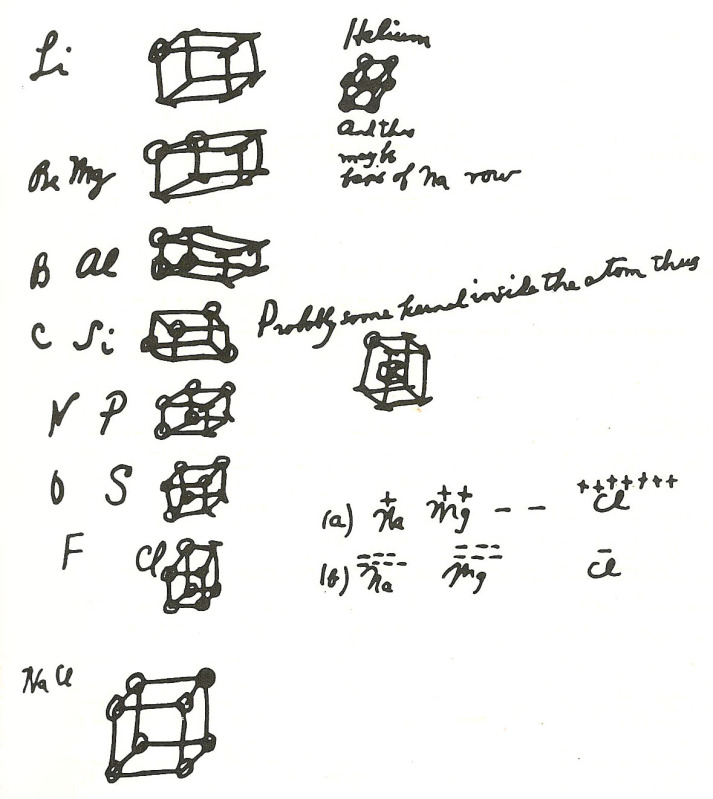 Li
Helium
And this
may be
basis of Na row
Be Mg
B Al
Probably some kernel inside the atom thus
C Si
N P
O S
+ ++ +++++++
(a) Na Mg - - Cl
F Cl
(b) Na Mg Cl
Na Cl